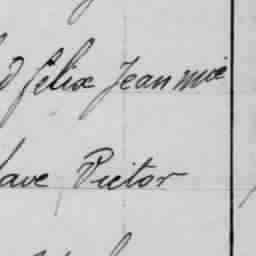 d Felix Jean Mie
ave Victor